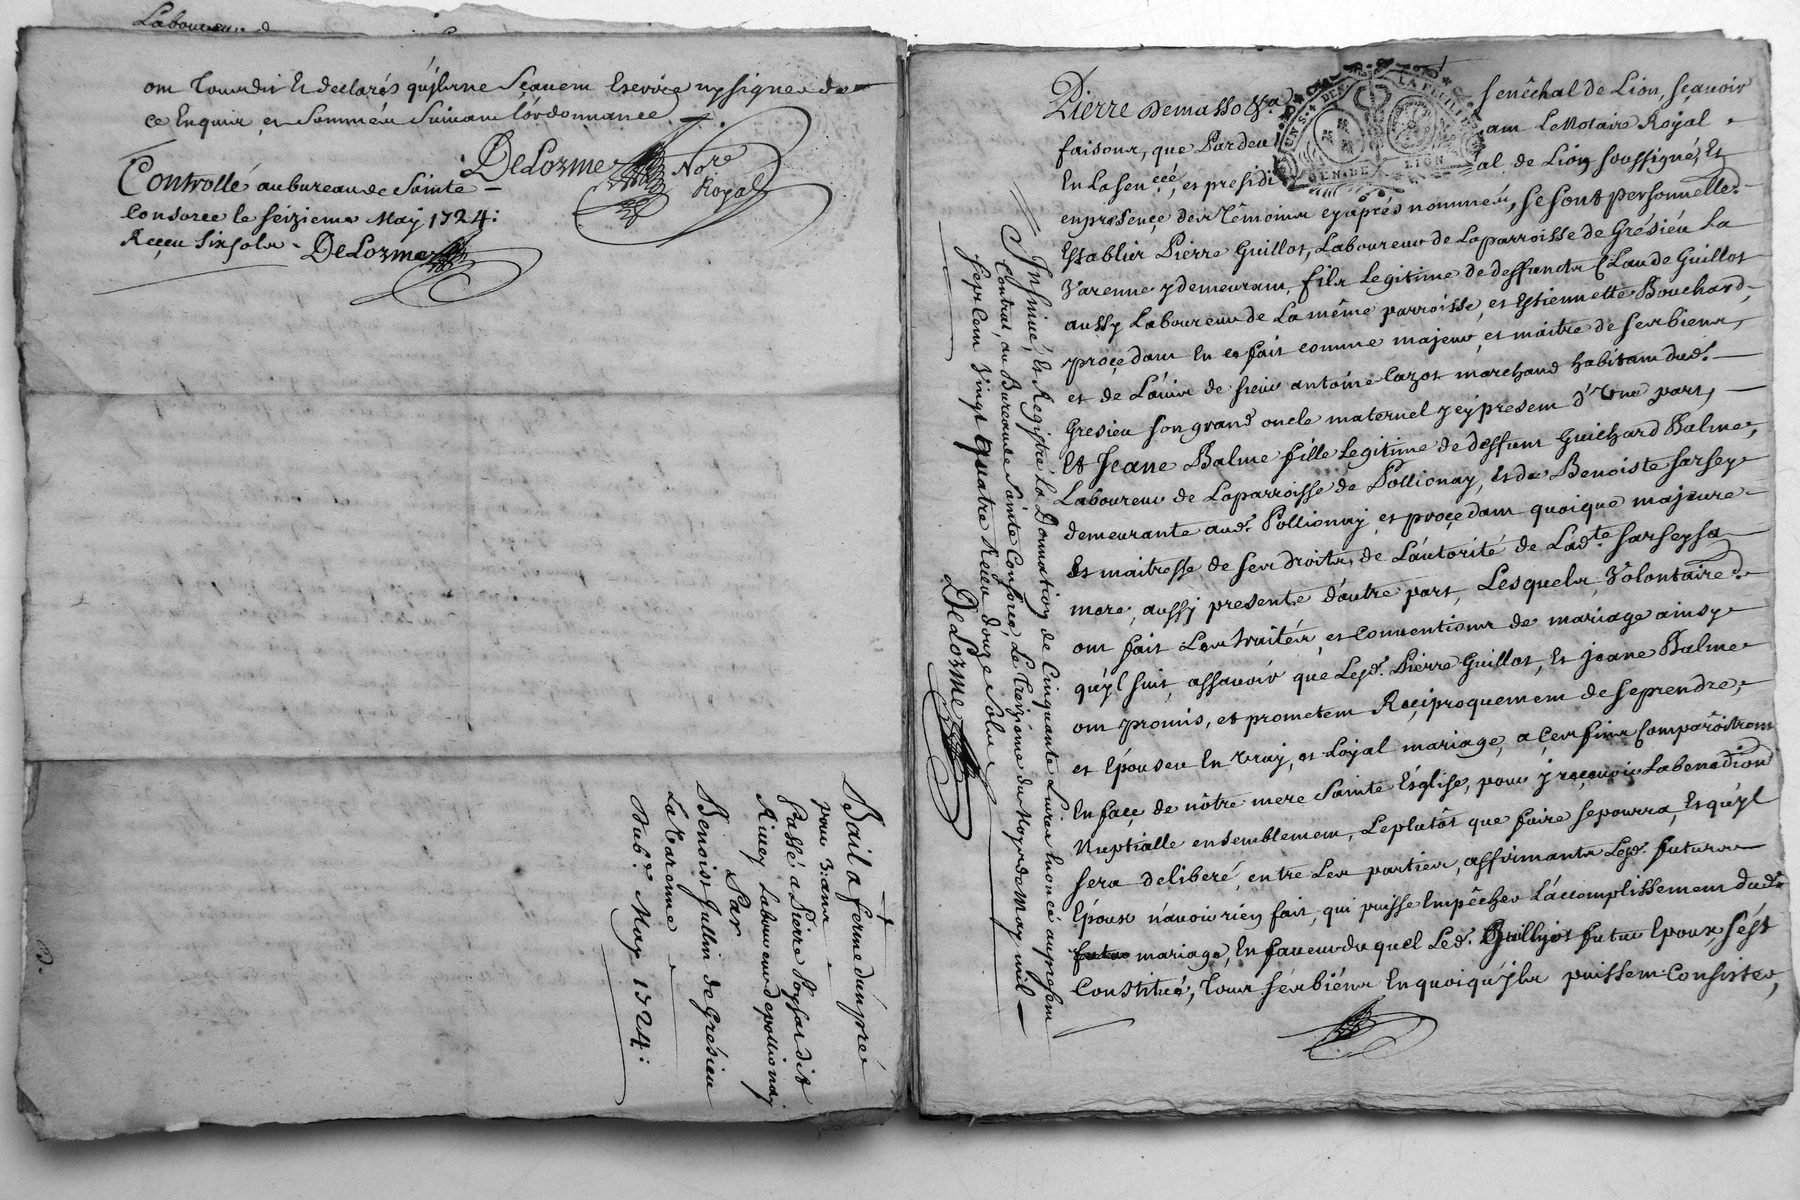 Laboureur de
ont Tous dit Et declarés qu'jls ne Sçavent Escrire nysigner de
ce Enquis et Sommés Suivant L'ordonnance
DeLorme Nore Royal
Controllé au bureau de Sainte
Consorce le Seizieme May 1724:
Receu Six sols. DeLorme
Bail a ferme du'n pré
pour 3: ans
Passé a Pierre
Laboureur de pollionay
Par
Benoist Jullin de Gresieu
La Varenne
Du May 1724:
Insinué, Et Registré La Donnation de Cinquante Livres Enoncé au present
Contrat, au Bureau de Sainte Consorce, Le Treizieme du Moys de May mil
Sept Cent Vingt Quatre Receu douze sols
DeLorme
Pierre Demasso &a Senêchal de Lion, Sçavoir
faisons, que Pardevant Le Notaire Royal
En La Senccée, et presidial de Lion soussigné, Et
en presençe des Têmoins cy aprés nommés, se sont personnellemt
Establies Pierre Guillot, Laboureur de La parroisse de Grésieu La
Varenne y demeurant, fils Legitime de deffuncts Claude Guillot
aussy Laboureur de La même parroisse, et Estiennette Bouchard,
proçedant En ce fait comme majeur et maitre de ses biens,
et de L'avis de sieur antoine Cazot marchand habitant dud.
Gresieu son grand oncle maternel jcy present d'Une part,
Et Jeane Balme fille Legitime de deffunt Guichard Balme,
Laboureur de La parroisse de Pollionay, Et de Benoiste Sarsey
demeurante aud. Pollionay et proçedant quoique majeure
Et maitresse de ses droits, de L'autorité de Ladte Sarsey sa
mere, aussy presente d'autre part, Lesquels Volontairemt
ont fait Les traités, et Conventions de mariage ainsy
qu'jl suit, assavoir que Led. Pierre Guillot, Et Jeane Balme
ont promis, et promettent Reçiproquement de se prendre,
et Epouser En vray, et Loyal mariage, a Ces fins Comparôitront
En façe de nôtre mere Sainte Église, pour y reçevoir La benediction
Nuptialle ensemblement, Le plutôt que faire se pourra, Et qu'jl
sera deliberé, entre Les parties, affirmants Led. futurs
Epoux n'avoir rien fait, qui puisse Empêcher L'accomplissement dud.
futur mariage, En faveur du quel Led. Guillot futur Epoux s'est
Constitué, Tous ses biens En quoi qu'jls puissent Consister,